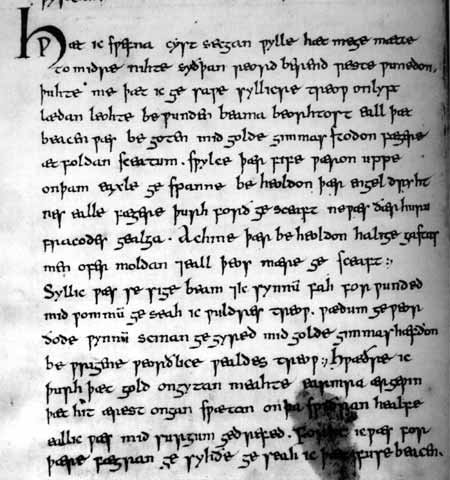 Hƿæt ic sƿefna cyst secgan ƿylle hæt me ge mætte
to midre nihte syðþan reord berend reste ƿunedon.
þuhte me þæt ic ge saƿe syllicre treoƿ on lyft
lædan leohte be ƿunden beama beorhtost eall þæt
beacen ƿæs be goten mid golde gimmas stodon fægere
æt foldan sceatum. sƿylce þær fife ƿæron uppe
on þam eaxle ge spanne be heoldon þær engel dryht
nes ealle fægere þurh forð ge sceaft ne ƿæs ðær huru
fracodes gealga. Ac hine þær be heoldon halige gastas
men ofer moldan 7 eall þeos mære ge sceaft :,
Syllic ƿæs se sige beam 7 ic synnū fah for ƿunded
mid ƿommū ge seah ic ƿuldres treoƿ. ƿædum ge ƿeor
ðode ƿynnū scinan ge gyred mid golde gimmas hæfdon
be ƿrigene ƿeorðlice ƿealdes treoƿ; Hƿæðre ic
þurh þæt gold ongytan meahte earmra ærgeƿin
þæt hit ærest ongan sƿætan on þa sƿiðran healfe
eall ic ƿæs mid surgum gedrefed. Forht ic ƿæs for
þære fægran ge syhðe ge seah ic þæt fuse beacen.